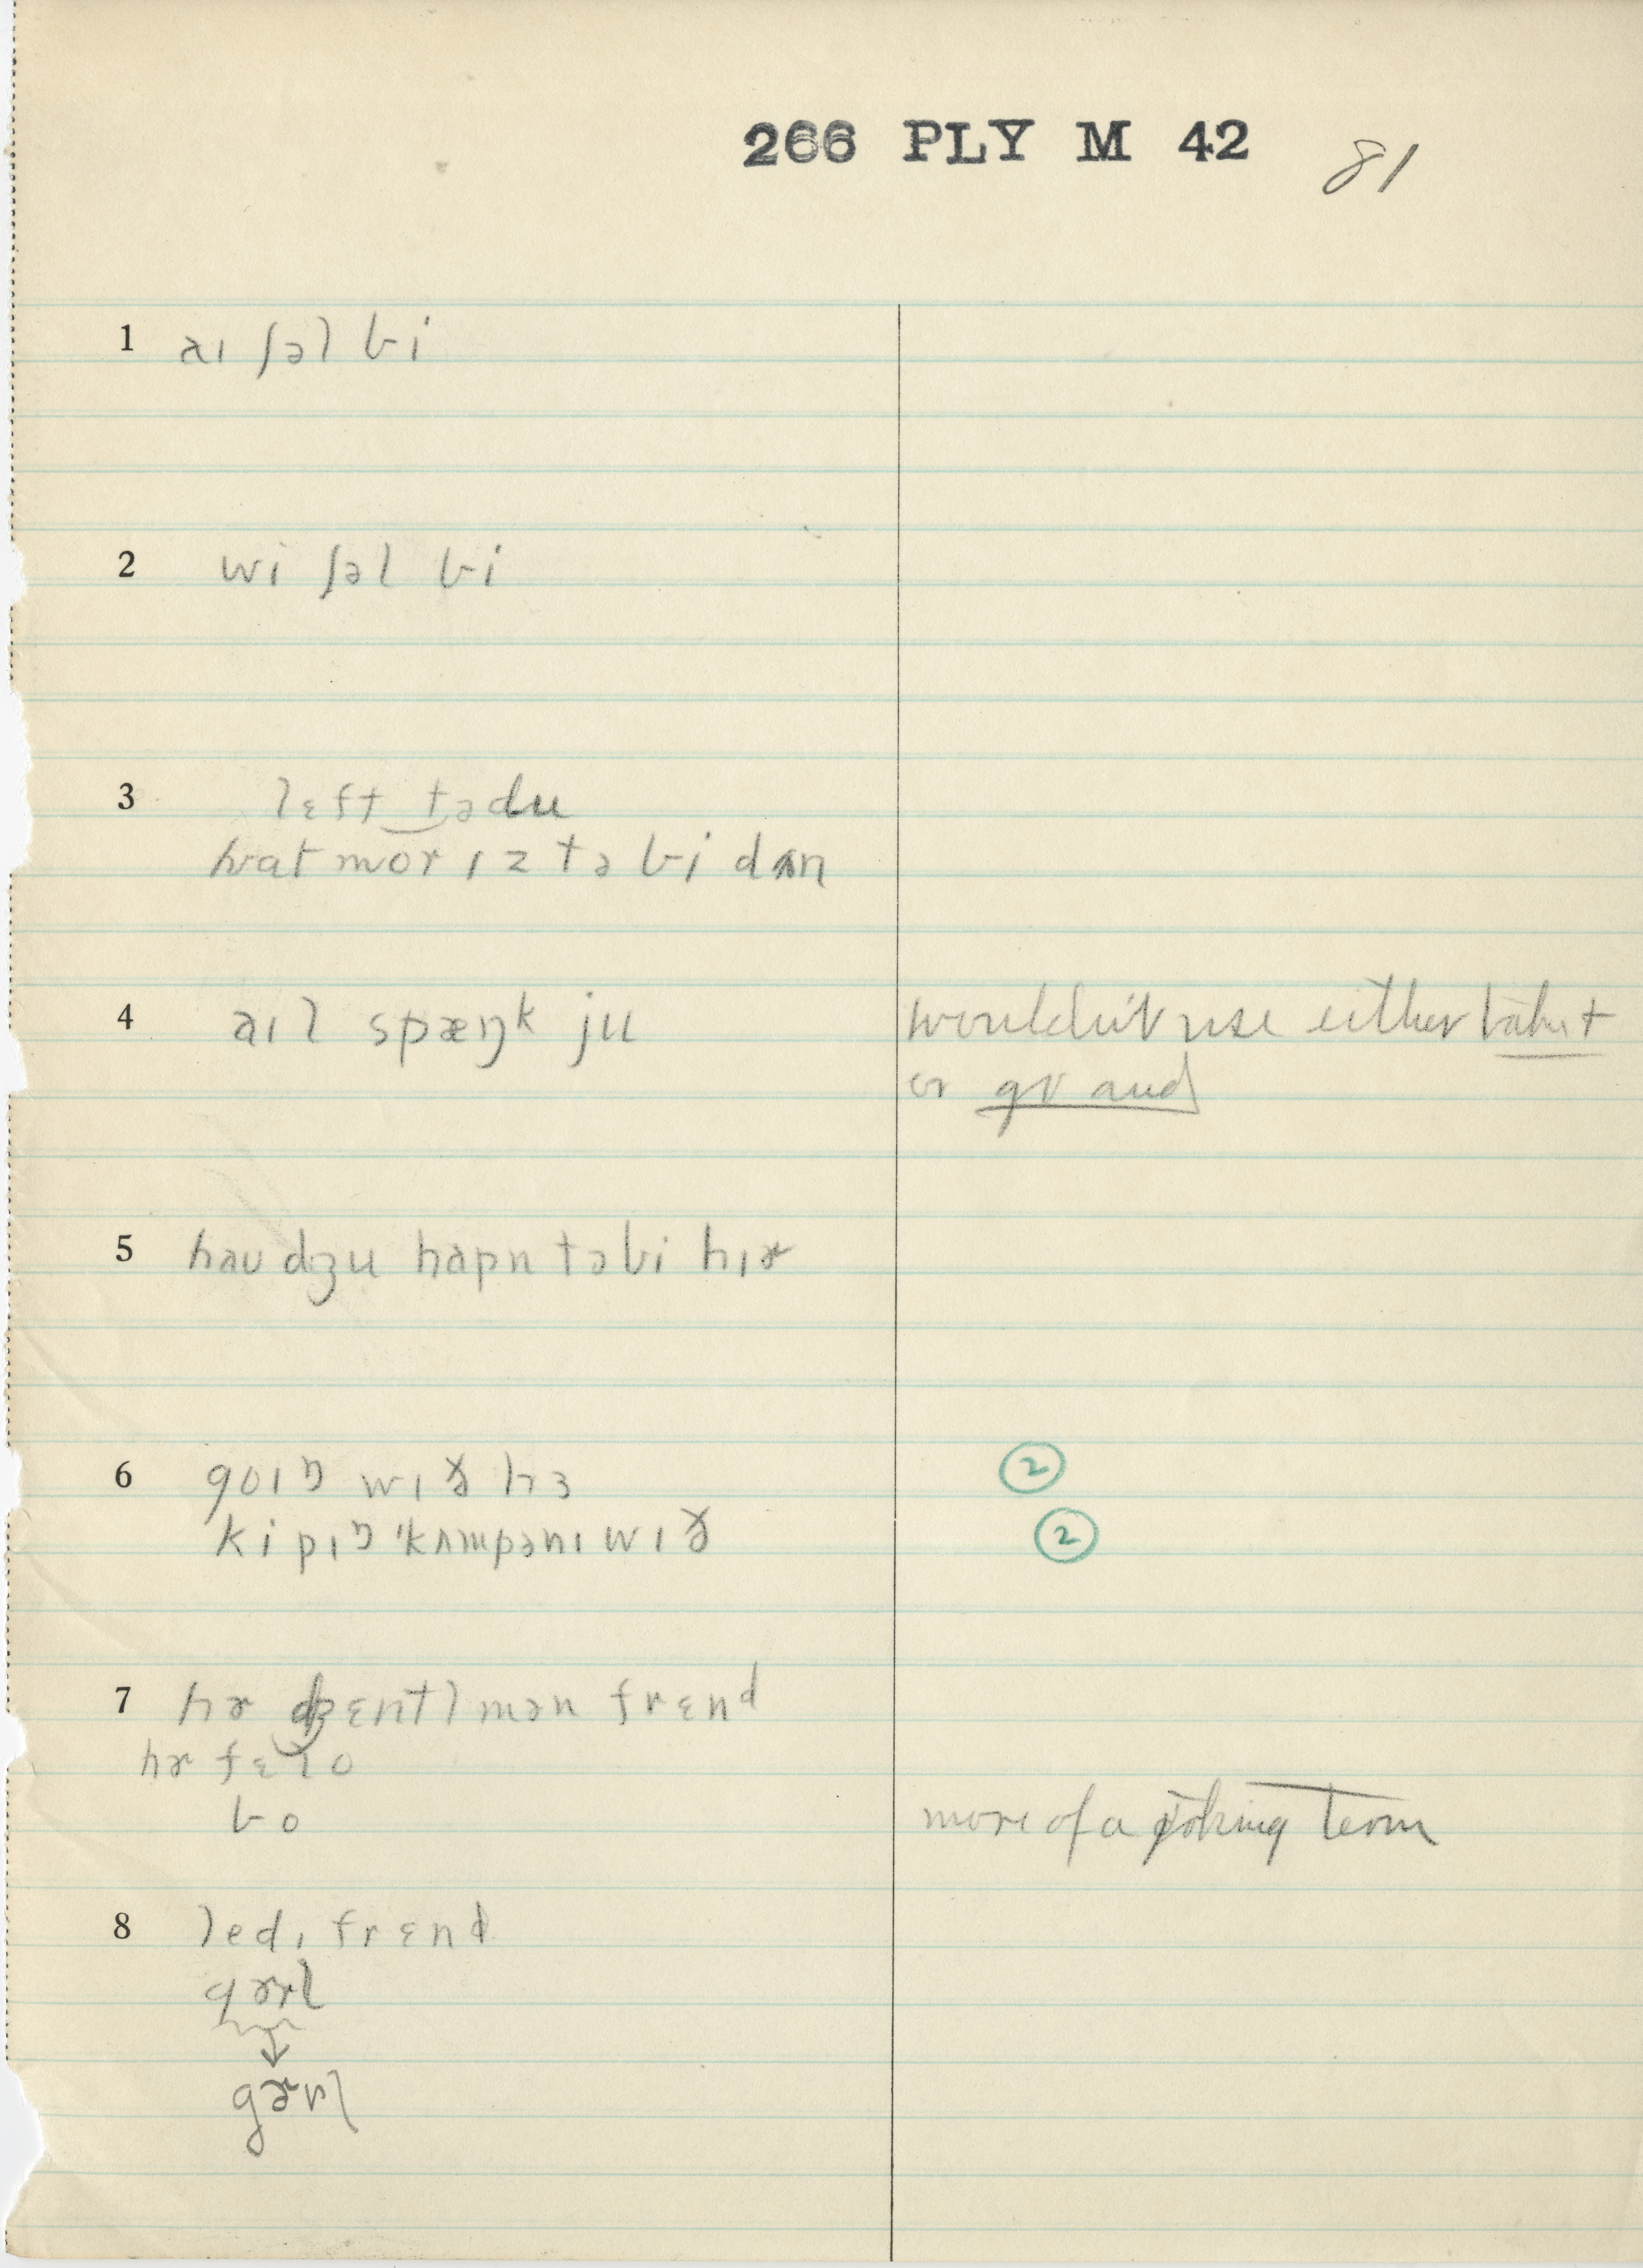 266 PLY M 42 81
1 aɪ ʃəl bi
2 wi ʃəl bi
3 lɛft tədu
hwat mor ɪz tə bi dʌn
4 aɪl spæŋk ju wouldn't use either
or
5 haʊ dʒu hapn təbi hɪɚ
6 goɪŋ wɪð hɜ ②
kipɪŋ 'kʌmpənɪ wɪð ②
7 hɚ dʒɛntlmən frɛnd
hɚ fɛlo
bo more of a joking term
8 ledɪ frɛnd
gɚrl
↓
gɚrl